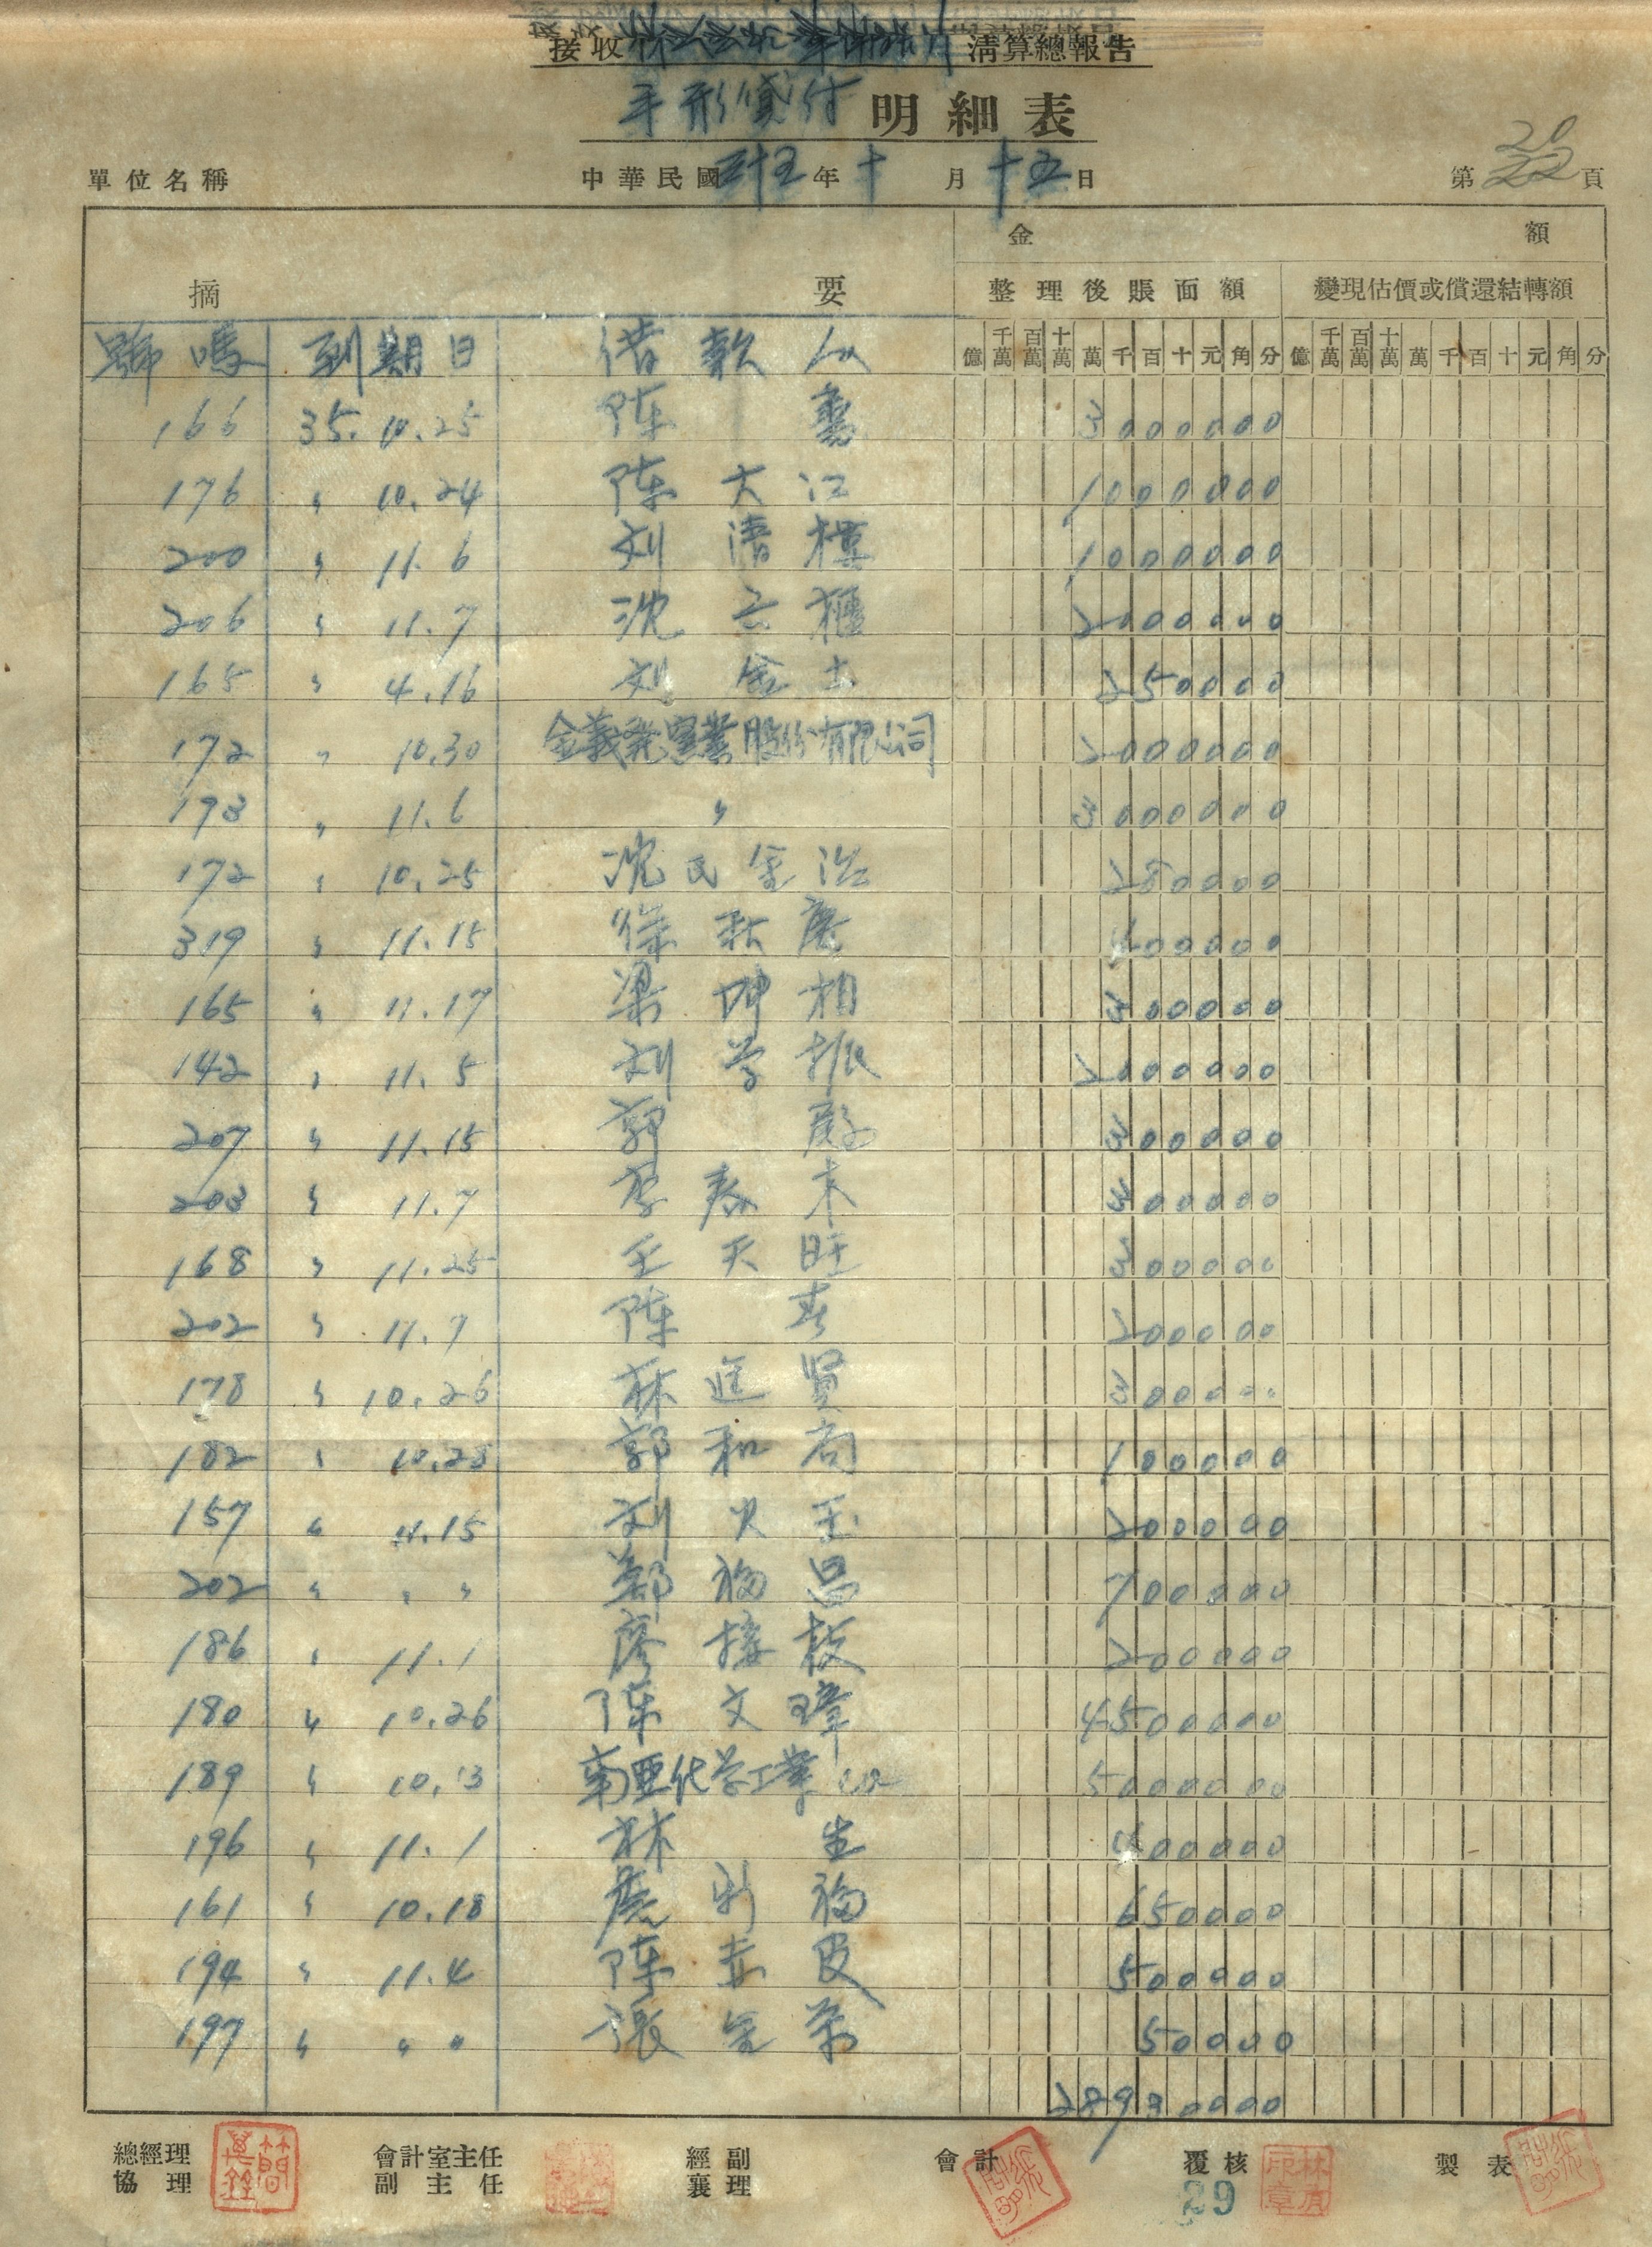 接收 清算總報告
手形貸付 明細表
單位名稱 中華民國 三十五 年 十 月 十五 日 第 頁
金 額
摘 要 整理後賬面額 變現估價或償還結轉額
號碼 到期日 借款人 億 千萬 百萬 十萬 萬 千 百 十 元 角 分 億 千萬 百萬 十萬 萬 千 百 十 元 角 分
166 35.10.25 陈 3000000
176 〃 10.24 陈大江 1000000
200 〃 11.6 刘清樓 1000000
206 〃 11.7 沈 2000000
165 〃 4.16 刘金土 250000
172 〃 10.30 金義発實業股份有限公司 2000000
193 〃 11.6 〃 3000000
172 〃 10.25 沈氏金治 280000
319 〃 11.15 徐秋 400000
165 〃 11.17 梁坤相 300000
142 〃 11.5 刘学振 2000000
207 〃 11.15 郭 300000
203 〃 11.7 李春木 300000
168 〃 11.25 王天旺 300000
202 〃 11.7 陈春 200000
178 〃 10.26 林進賢 300000
182 〃 10.28 郭和尚 100000
157 〃 11.15 刘火玉 200000
202 〃 〃 〃 鄭福昌 700000
186 〃 11.1 廖接枝 200000
180 〃 10.26 陈文璋 4500000
189 〃 10.13 南亜化学工業 5000000
196 〃 11.1 林生 400000
161 〃 10.18 新福 650000
194 〃 11.4 陈赤皮 500000
197 〃 〃 〃 張金 50000
28930000
總經理 會計室主任 經副 會計 覆核 製表
協理 副主任 襄理
29